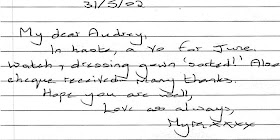 31/5/02
My dear Audrey,
In haste, a for June.
Watch, dressing gown 'sorted'! Also
cheque received. Many thanks.
Hope you are well,
Love as always,
xxxx